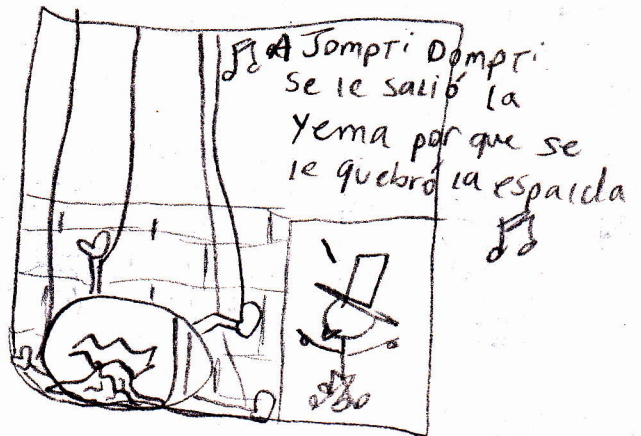 A Jompti Dompti
se le salió la
Yema por que se
le quebró la espalda